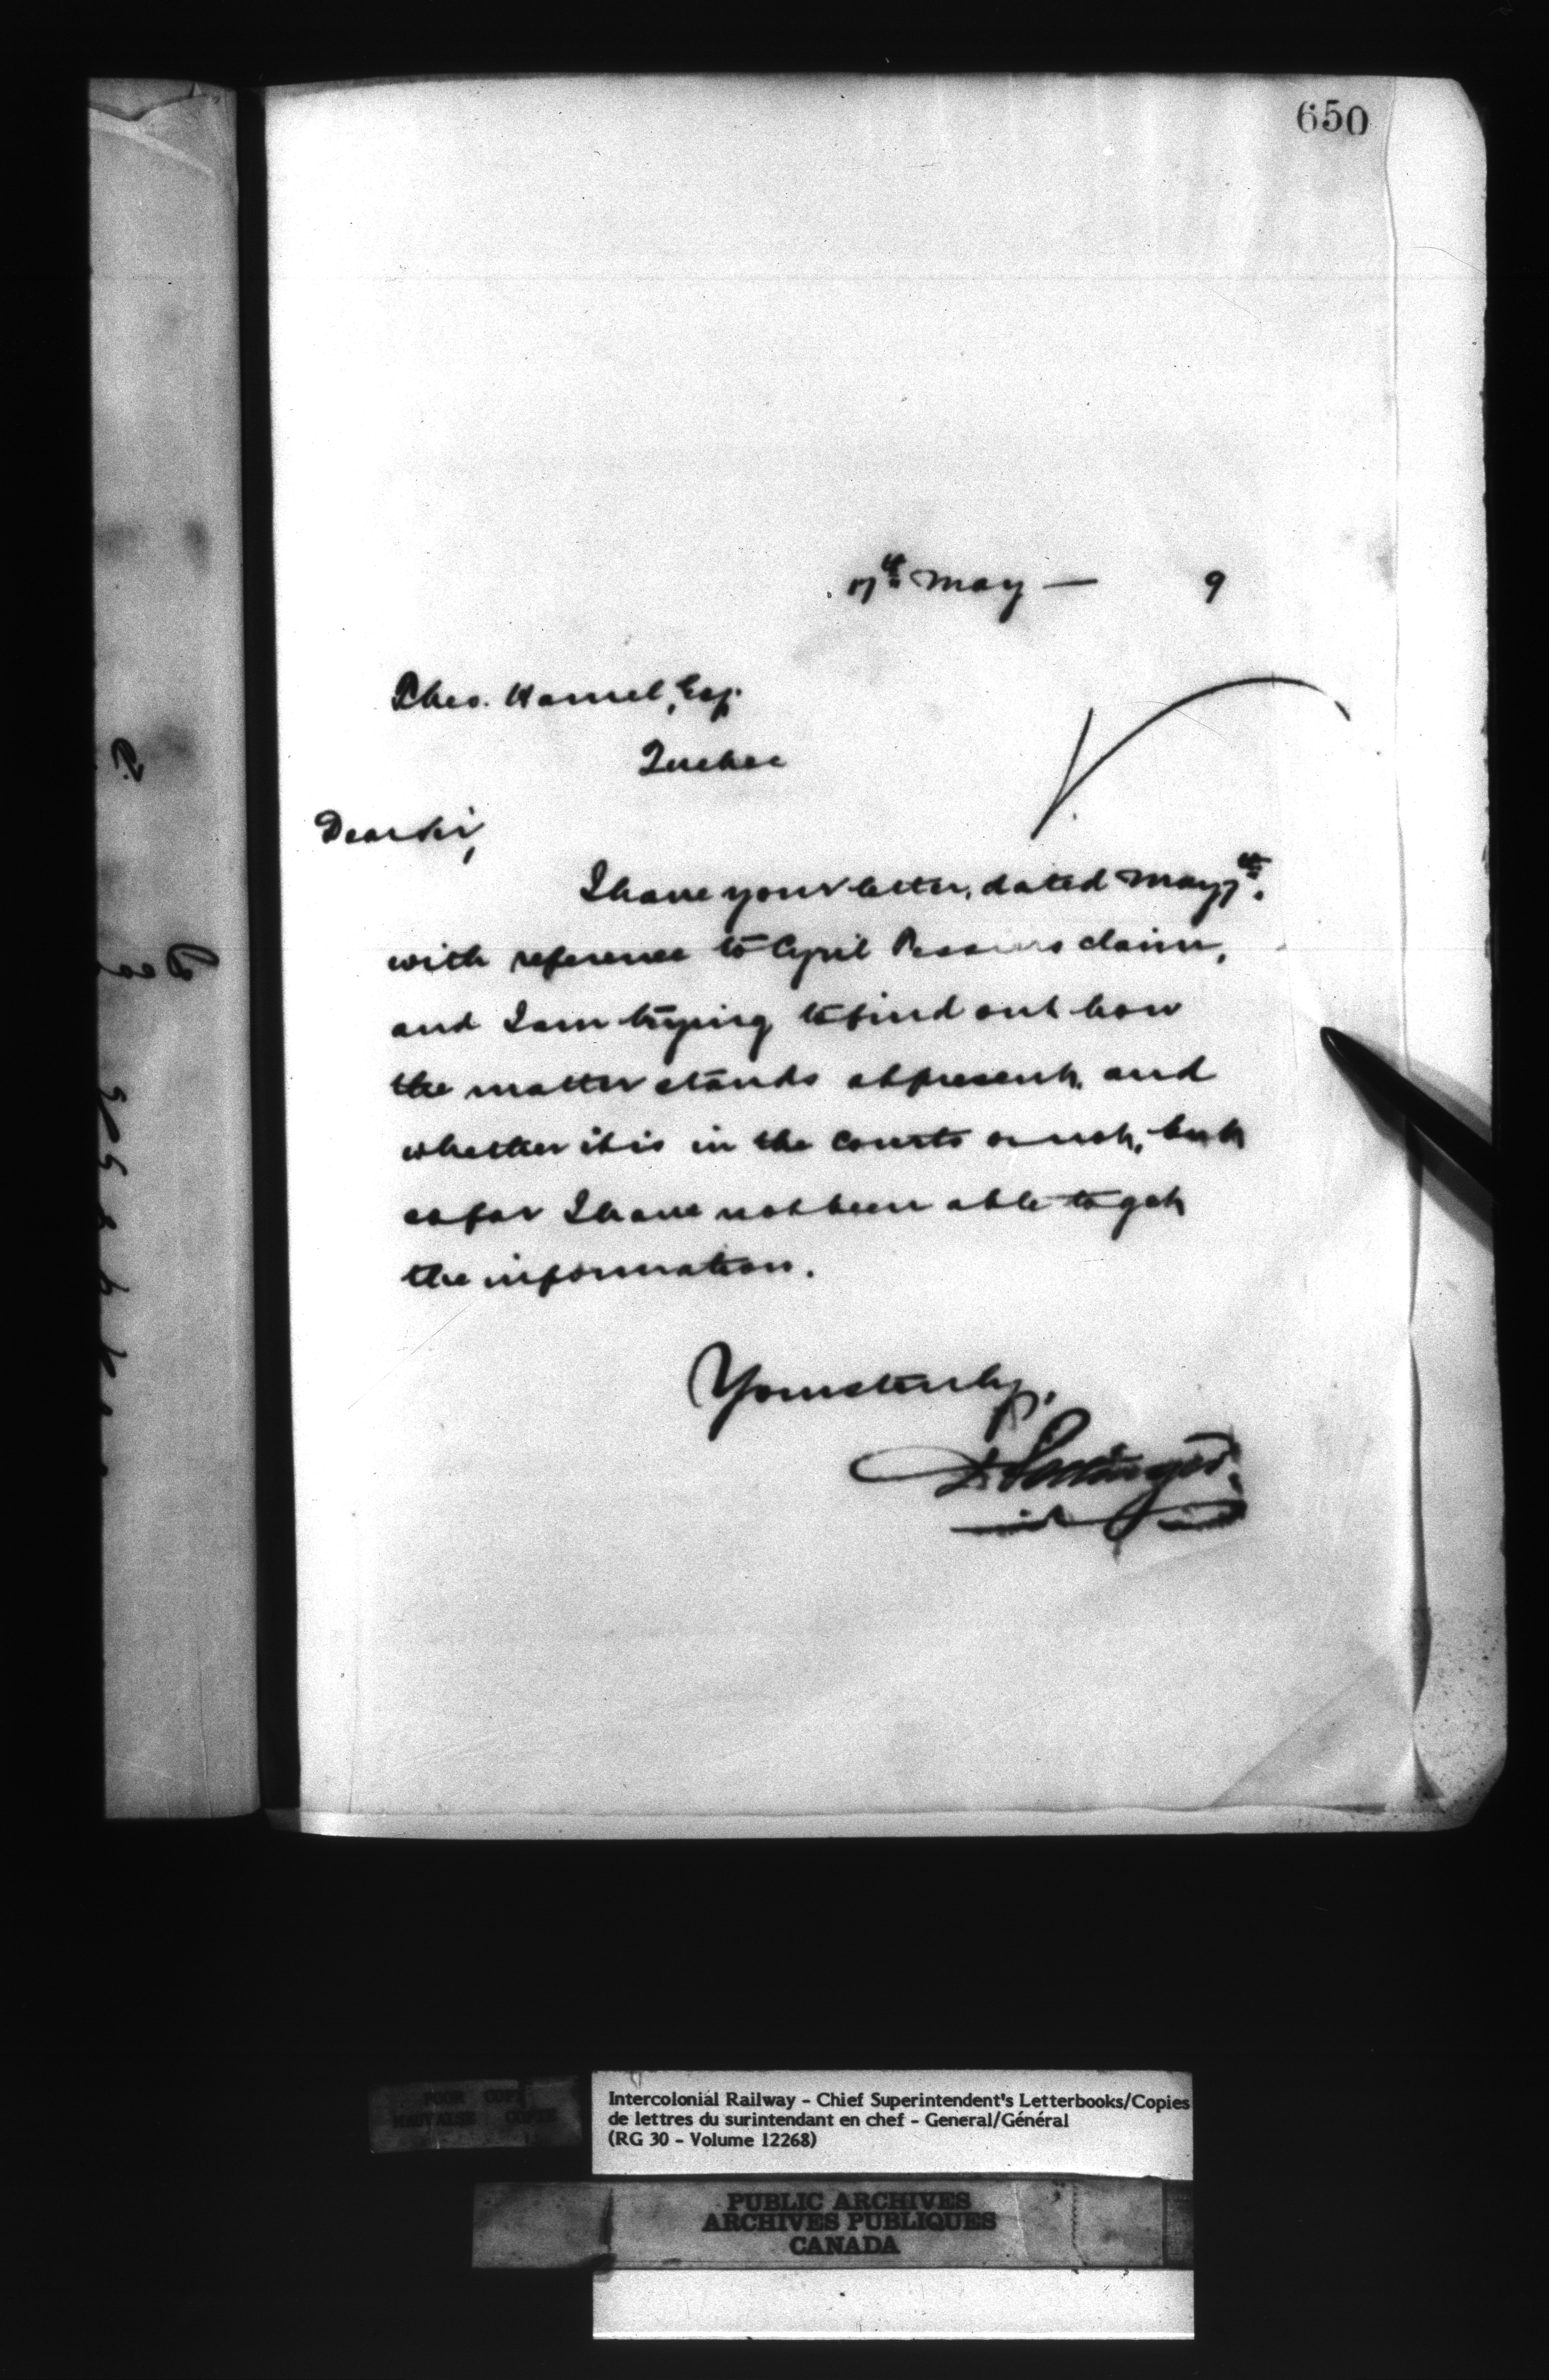 650
17th May — 9
Theo. Hamel, Esq.
Quebec
Dear Sir,
I have your letter, dated May 7th.
with reference to Cyril claim,
and I am trying to find out how
the matter stands at present, and
whether it is in the Courts or not, but
so far I have not been able to get
the information.
Yours truly,
D. Pottinger
POOR COPY
MAUVAISE COPIE
Intercolonial Railway - Chief Superintendent's Letterbooks/Copies
de lettres du surintendant en chef - General/Général
(RG 30 - Volume 12268)
PUBLIC ARCHIVES
ARCHIVES PUBLIQUES
CANADA